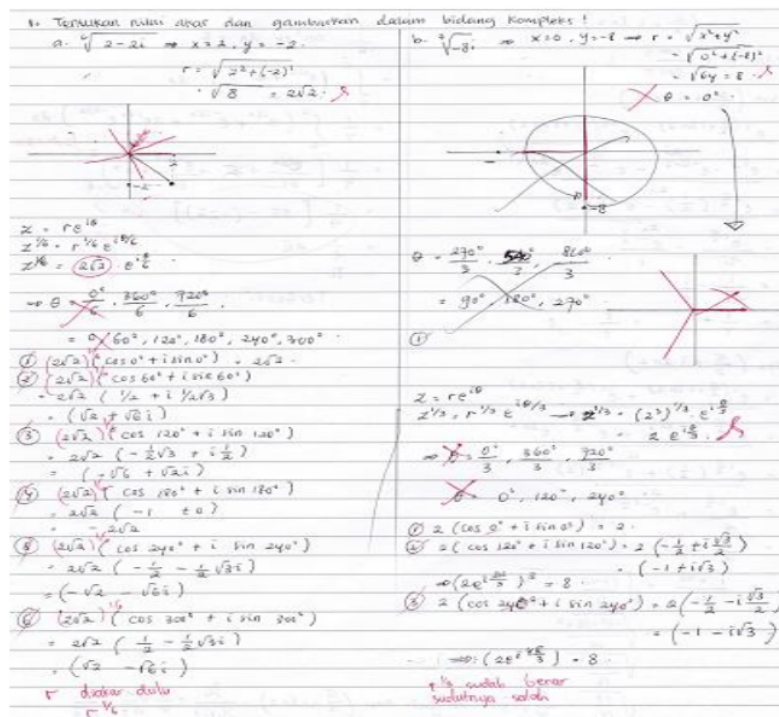 1. Tentukan nilai akar dan gambarkan dalam bidang kompleks!
a. ⁶√2-2i ⇒ x = 2, y = -2
r = √2²+(-2)²
= √8 = 2√2.
-2
z = re^iθ
z^1/6 = r^1/6 e^iθ/6
z^1/6 = (2√2) · e^iθ/6
⇒ θ = 0°/6, 360°/6, 720°/6.
= 0°, 60°, 120°, 180°, 240°, 300°.
① (2√2)^1/6 (cos 0° + i sin 0°) = 2√2.
② (2√2)^1/6 (cos 60° + i sin 60°)
= 2√2 (1/2 + i 1/2√3)
= (√2 + √6i)
③ (2√2)^1/6 (cos 120° + i sin 120°)
= 2√2 (-1/2√3 + i 1/2)
= (-√6 + √2i)
④ (2√2)^1/6 (cos 180° + i sin 180°)
= 2√2 (-1 + 0)
= -2√2
⑤ (2√2)^1/6 (cos 240° + i sin 240°)
= 2√2 (-1/2 - 1/2√3i)
= (-√2 - √6i)
⑥ (2√2)^1/6 (cos 300° + i sin 300°)
= 2√2 (1/2 - 1/2√3i)
= (√2 - √6i)
r diakar dulu
r^1/6
b. ³√-8i ⇒ x=0, y=-8 → r = √x²+y²
= √0²+(-8)²
= √64 = 8.
θ = 0°
-8
θ = 270°/3, 540°/3, 810°/3
= 90°, 180°, 270°
①
z = re^iθ
z^1/3 = r^1/3 e^iθ/3 → z^1/3 = (2³)^1/3 · e^iθ/3
= 2 e^iθ/3.
⇒ θ = 0°/3, 360°/3, 720°/3
θ = 0°, 120°, 240°
① 2 (cos 0° + i sin 0°) = 2.
② 2 (cos 120° + i sin 120°) = 2 (-1/2 + i√3/2)
= (-1 + i√3)
= 8.
③ 2 (cos 240° + i sin 240°) = 2 (-1/2 - i√3/2)
= (-1 - i√3)
= 8.
r^1/3 sudah benar
sudutnya salah